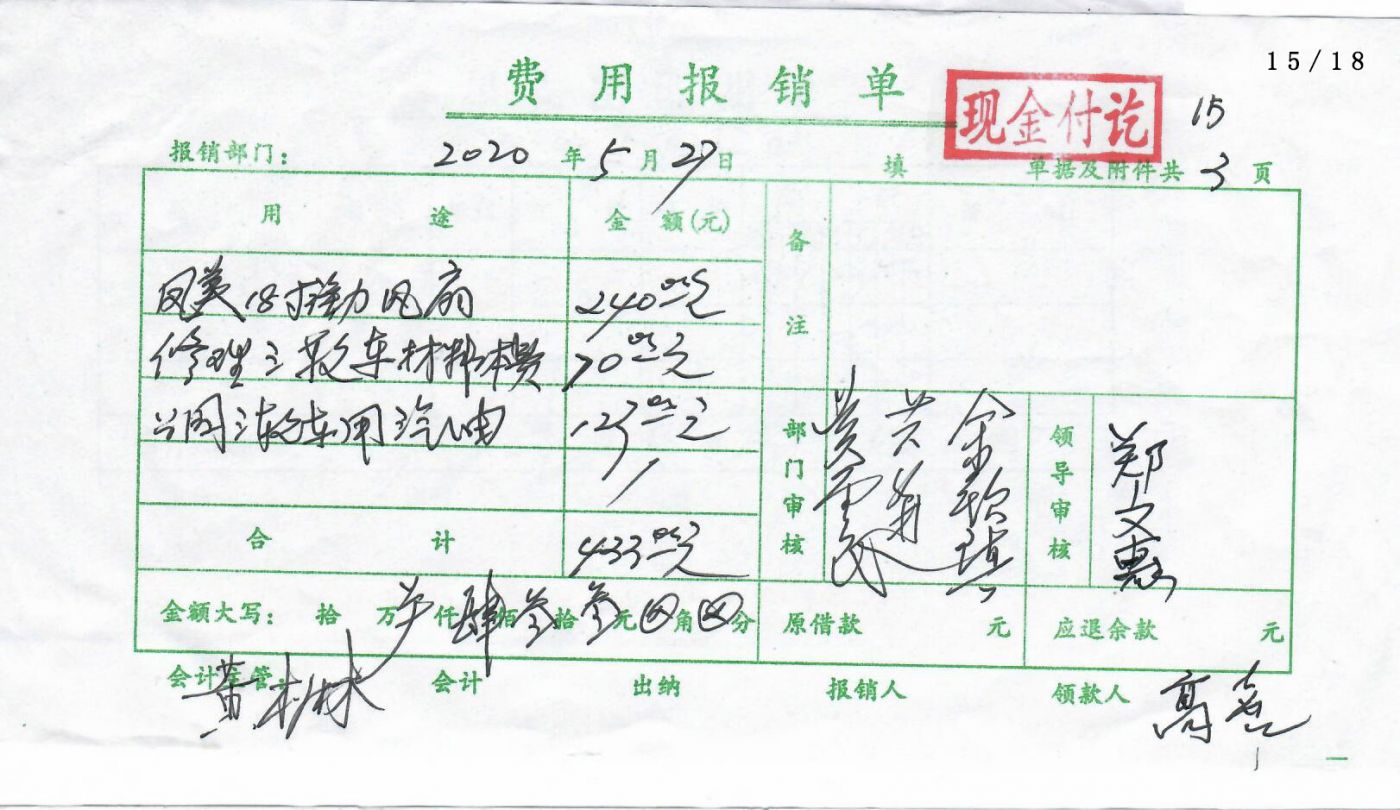 15/18
费用报销单
现金付讫
15
报销部门: 2020年5月27日 填 单据及附件共3页
用途 金额(元) 备注
风美18寸强力风扇 240.00元
修理三轮车材料费 70.00元
三轮车用汽油 123.00元
合计 433.00元
部门审核
领导审核 郑文惠
金额大写: 拾 万 仟肆佰叁拾叁元 角 分 原借款 元 应退余款 元
会计主管: 黄 林 会计 出纳 报销人 领款人 高